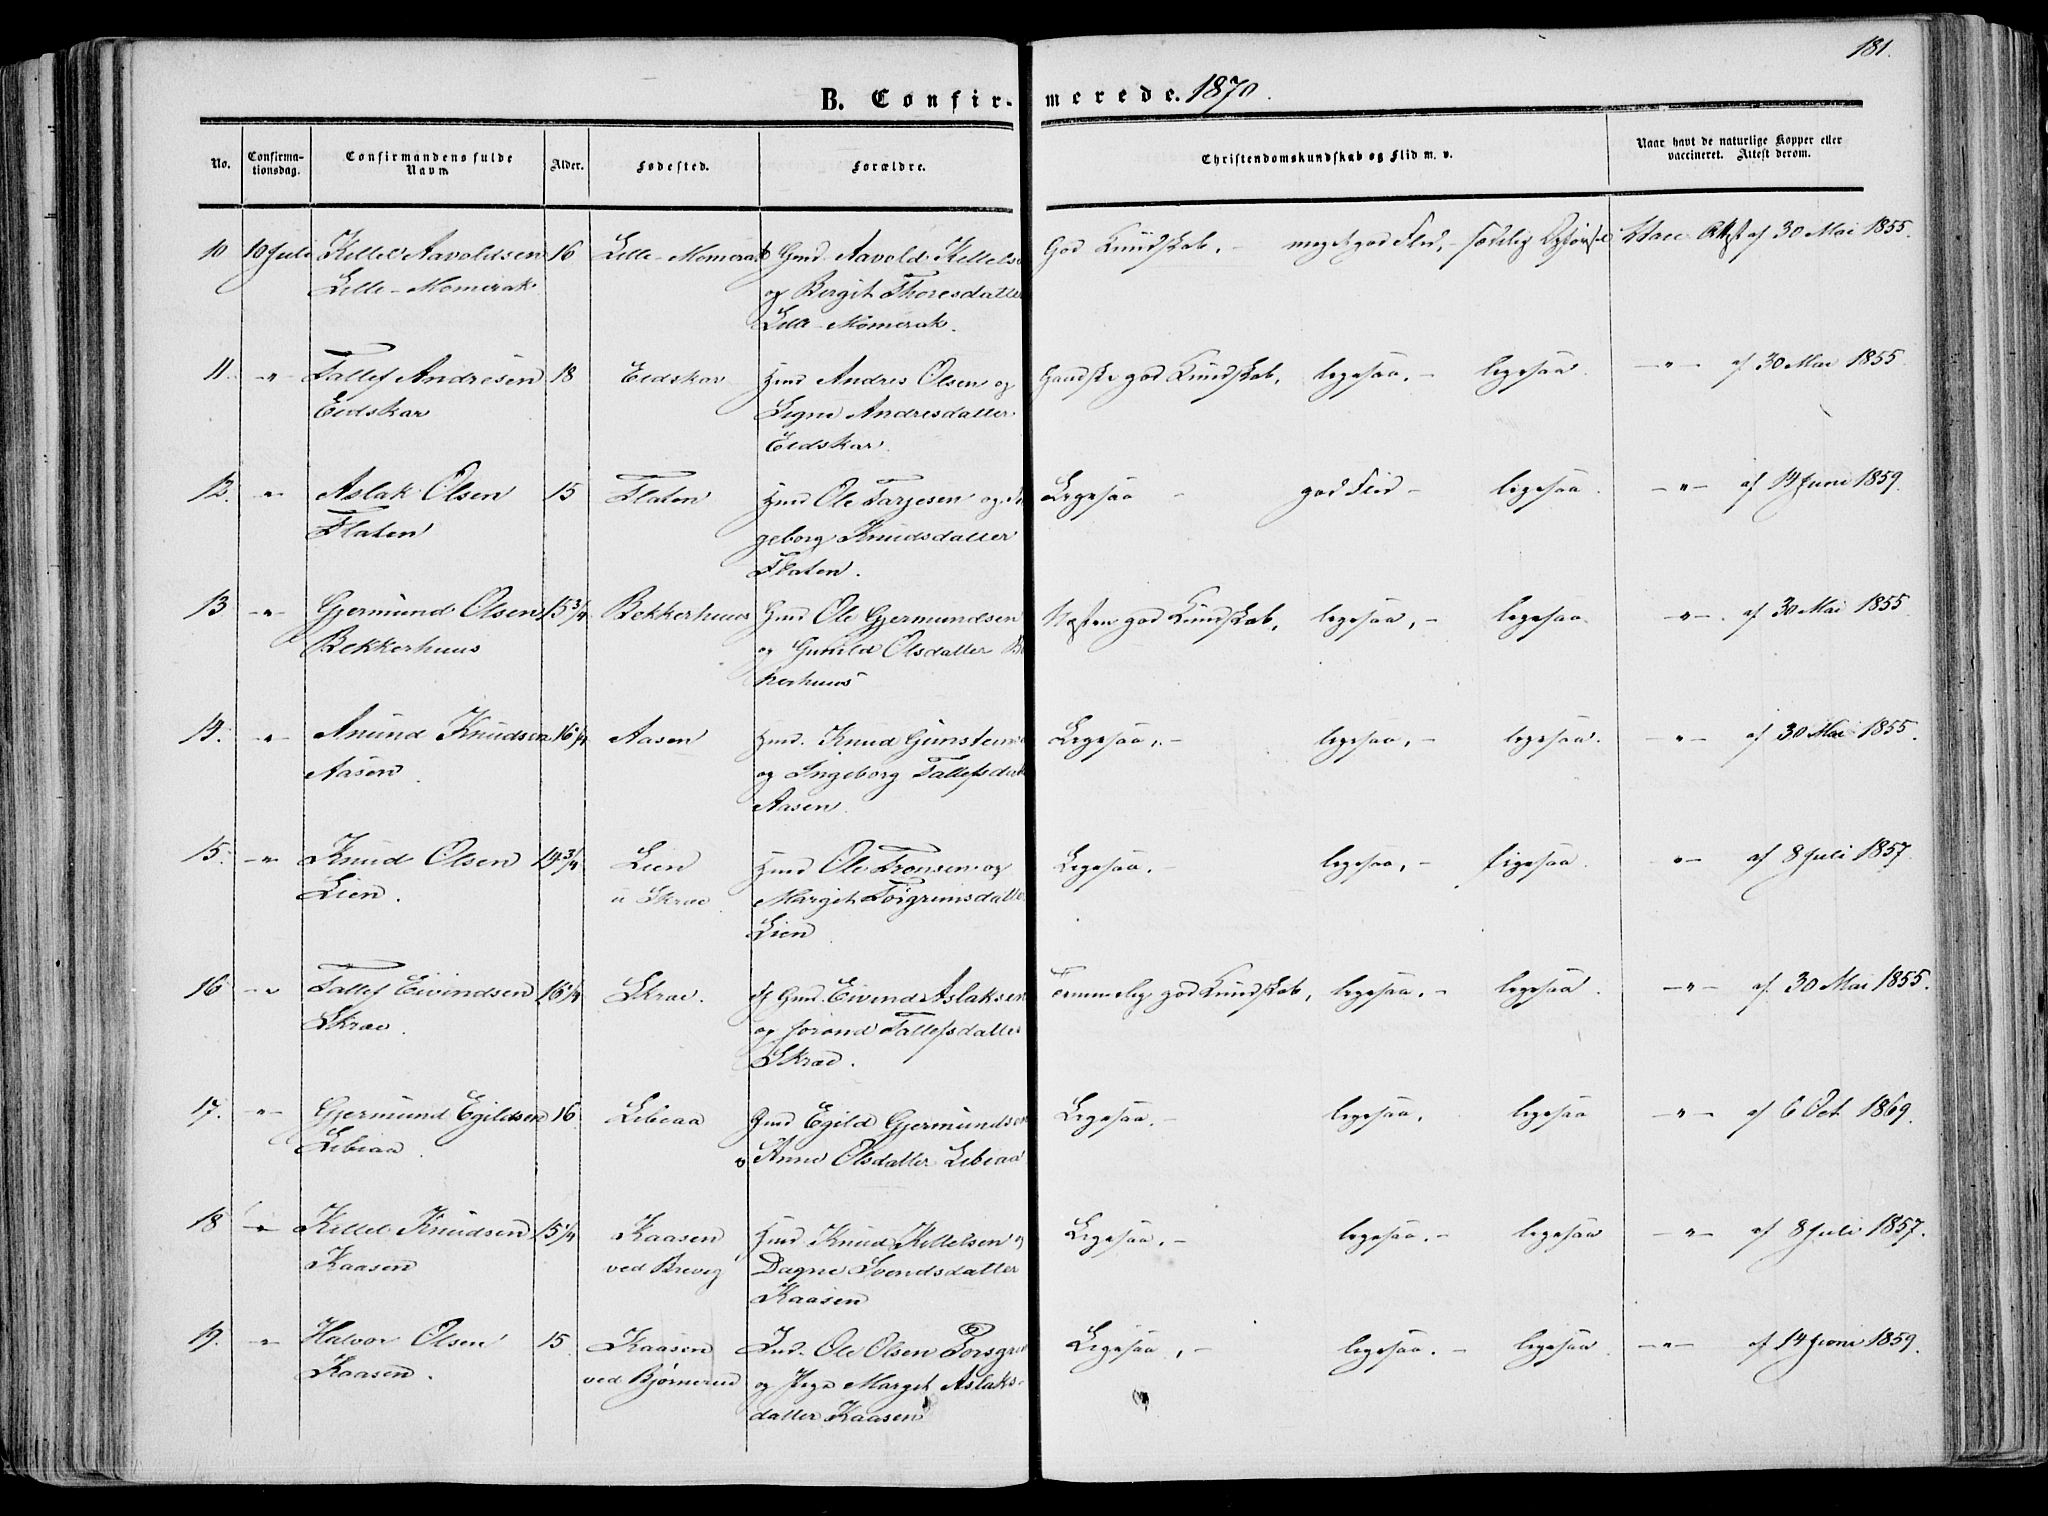 181.
B. Confirmerede. 1870.
No. Confirmationsdag. Confirmandens fulde Navn. Alder. Fødested. Forældre. Christendomskundskab og Flid m. v. Naar havt de naturlige Kopper eller vaccineret. Attest derom.
10 10 Juli Kittel Aavoldsen 16 Lille-Momrak Gmd. Aavold Kittels God Kundskab, - meget god Flid, - sædelig Vacc. Attest af 30 Mai 1855.
Lille-Momerak og Bergit Thoresdatter
Lille-Momerak.
11. -"- Tallef Andresen 18 Eidskar Hmd Andres Olsen og Ganske god Kundskab, ligesaa. - ligesaa. -"- af 30 Mai 1855
Eidskar Signe Andresdatter
Eidskar.
12. -"- Aslak Olsen 15 Flaten Hmd Ole Tarjesen og In Ligesaa - god Flid - ligesaa. -"- af 14 Juni 1859.
Flaten geborg Knudsdatter
Flaten.
13 -"- Gjermund Olsen 15 3/4 Bekkerhuus Hmd Ole Gjermundsen Næsten god Kundskab, ligesaa, - ligesaa. -"- af 30 Mai 1855.
Bekkerhuus og Gunild Olsdatter
kerhuus
14. -"- Anund Knudsen 16 1/4 Aasen Hmd. Knud Gunstens Ligesaa, - ligesaa, - ligesaa. -"- af 30 Mai 1855.
Aasen. og Ingeborg Tallefsdatt
Aasen.
15. -"- Knud Olsen 14 3/4 Lien Hmd Ole Tronsen og Ligesaa. - ligesaa, - ligesaa. "- af 8 Juli 1857.
Lien. u Skrae. Margit Torgrimsdatter
Lien
16 -"- Tallef Eivindsen 16 1/4 Skrae. Gmd. Eivind Aslaksen Temmelig god Kundskab, ligesaa. - ligesaa. -"- af 30 Mai 1855.
Skrae. og Jorand Tallefsdatter
Skrae.
17. -"- Gjermund Egildsen 16 Libiaa Gmd Egild Gjermundsen Ligesaa. - ligesaa, ligesaa -"- af 6 Oct. 1869.
Libiaa. o Anne Olsdatter Libiaa
18 -"- Kittel Knudsen 15 1/4 Kaasen Hmd Knud Kittelsen og Ligesaa. - ligesaa. - ligesaa -"- af 8 Juli 1857.
Kaasen ved Brevig Dagne Svendsdatter
Kaasen
19. -"- Halvor Olsen 15. Kaasen Ind. Ole Olsen Porsgr Ligesaa, - ligesaa. - ligesaa. -"- af 14 Juni 1859.
Kaasen. ved Bjørnerud og Pige Margit Aslaks-
datter Kaasen